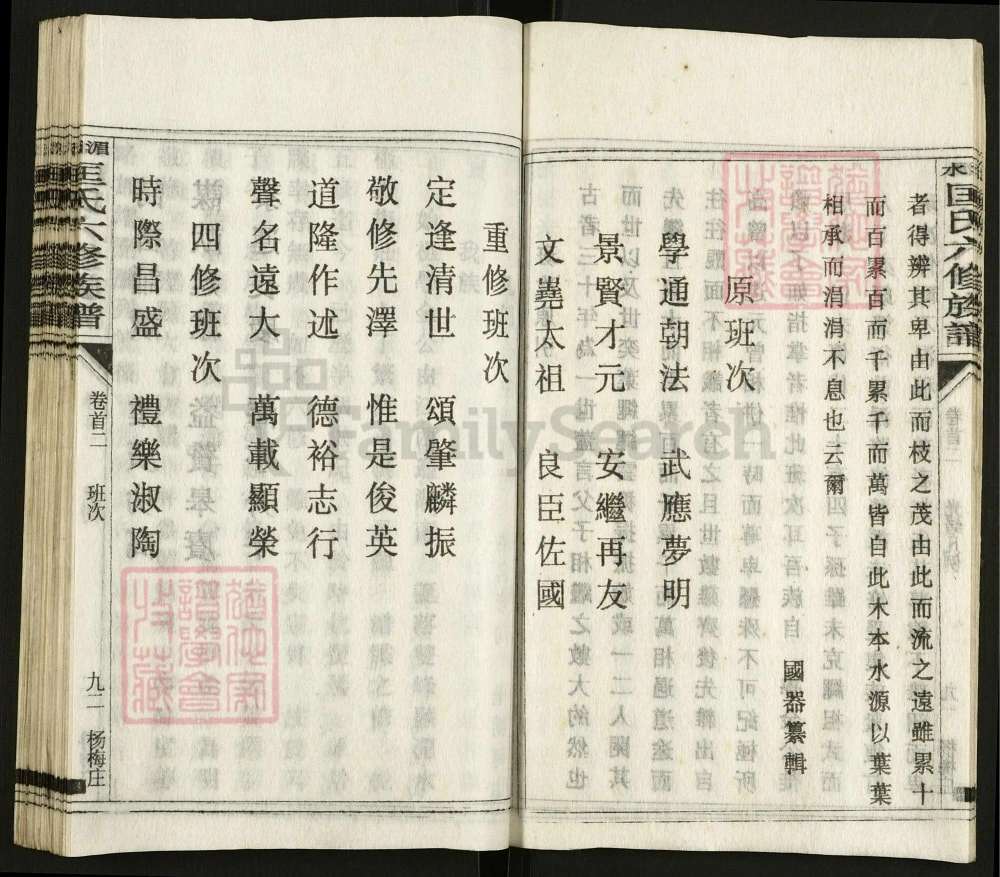 者得辨其卑由此而枝之茂由此而流之遠雖累十
而百累百而千累千而萬皆自此木本水源以葉葉
相承而涓涓不息也云爾
國器纂輯
原班次
學通朝法　武應夢明
景賢才元　安繼再友
文堯太祖　良臣佐國
重修班次
定逢清世　頌肇麟振
敬修先澤　惟是俊英
道隆作述　德裕志行
聲名遠大　萬載顯榮
四修班次
時際昌盛　禮樂淑陶
匡氏六修族譜
卷首二　班次
九二　杨梅庄
FamilySearch